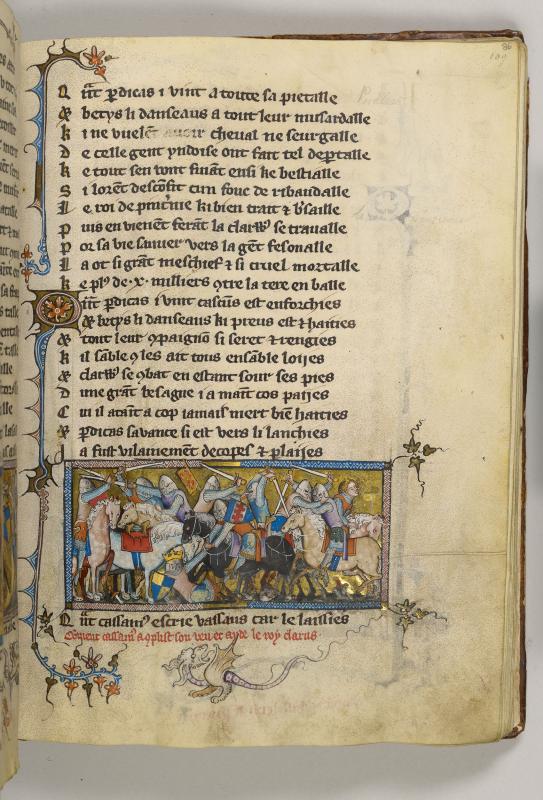 86
109
Q̄nt ꝑdicas i vint a toute sa pietaille
& betys li danseaus a tout leur
k i ne vuelēt avoir cheual ne
D e celle gent yndoise ont fait tel
k e tout sen vont fuiāt ensi ke bestiaille
S i lorēt descōfit cun fouc de ribaudaille
L e roi de ki bien trait &
P uis en vienēt ferāt la clarꝰ se trauaille
P or sa vie sauuer vers la gēt fesonaille
L a ot si grāt meschief & si cruel mortaille
k e plꝰ de .x. milliers ꝯtre la tere en baille
Q̄nt ꝑdicas i vint cascuns est enforchies
& betys li danseaus ki preus est & haities
& tout leur ꝯpaignō si seret & rengies
k il sāble ꝯles ait tous ensāble loijes
& clarꝰ se ꝯbat en estant sour ses pies
D une grāt besague i a maīt cos paijes
C ui il ataīt a cop iamais niert biē haities
& ꝑdicas sauance si est vers li lanchies
J a fust vilainemēt decopes & plaijes
Q̄nt cassamꝰ escrie vassaus car le laissies
Cōment cassamꝰ aꝯplist son veu et ayde le roy clarus